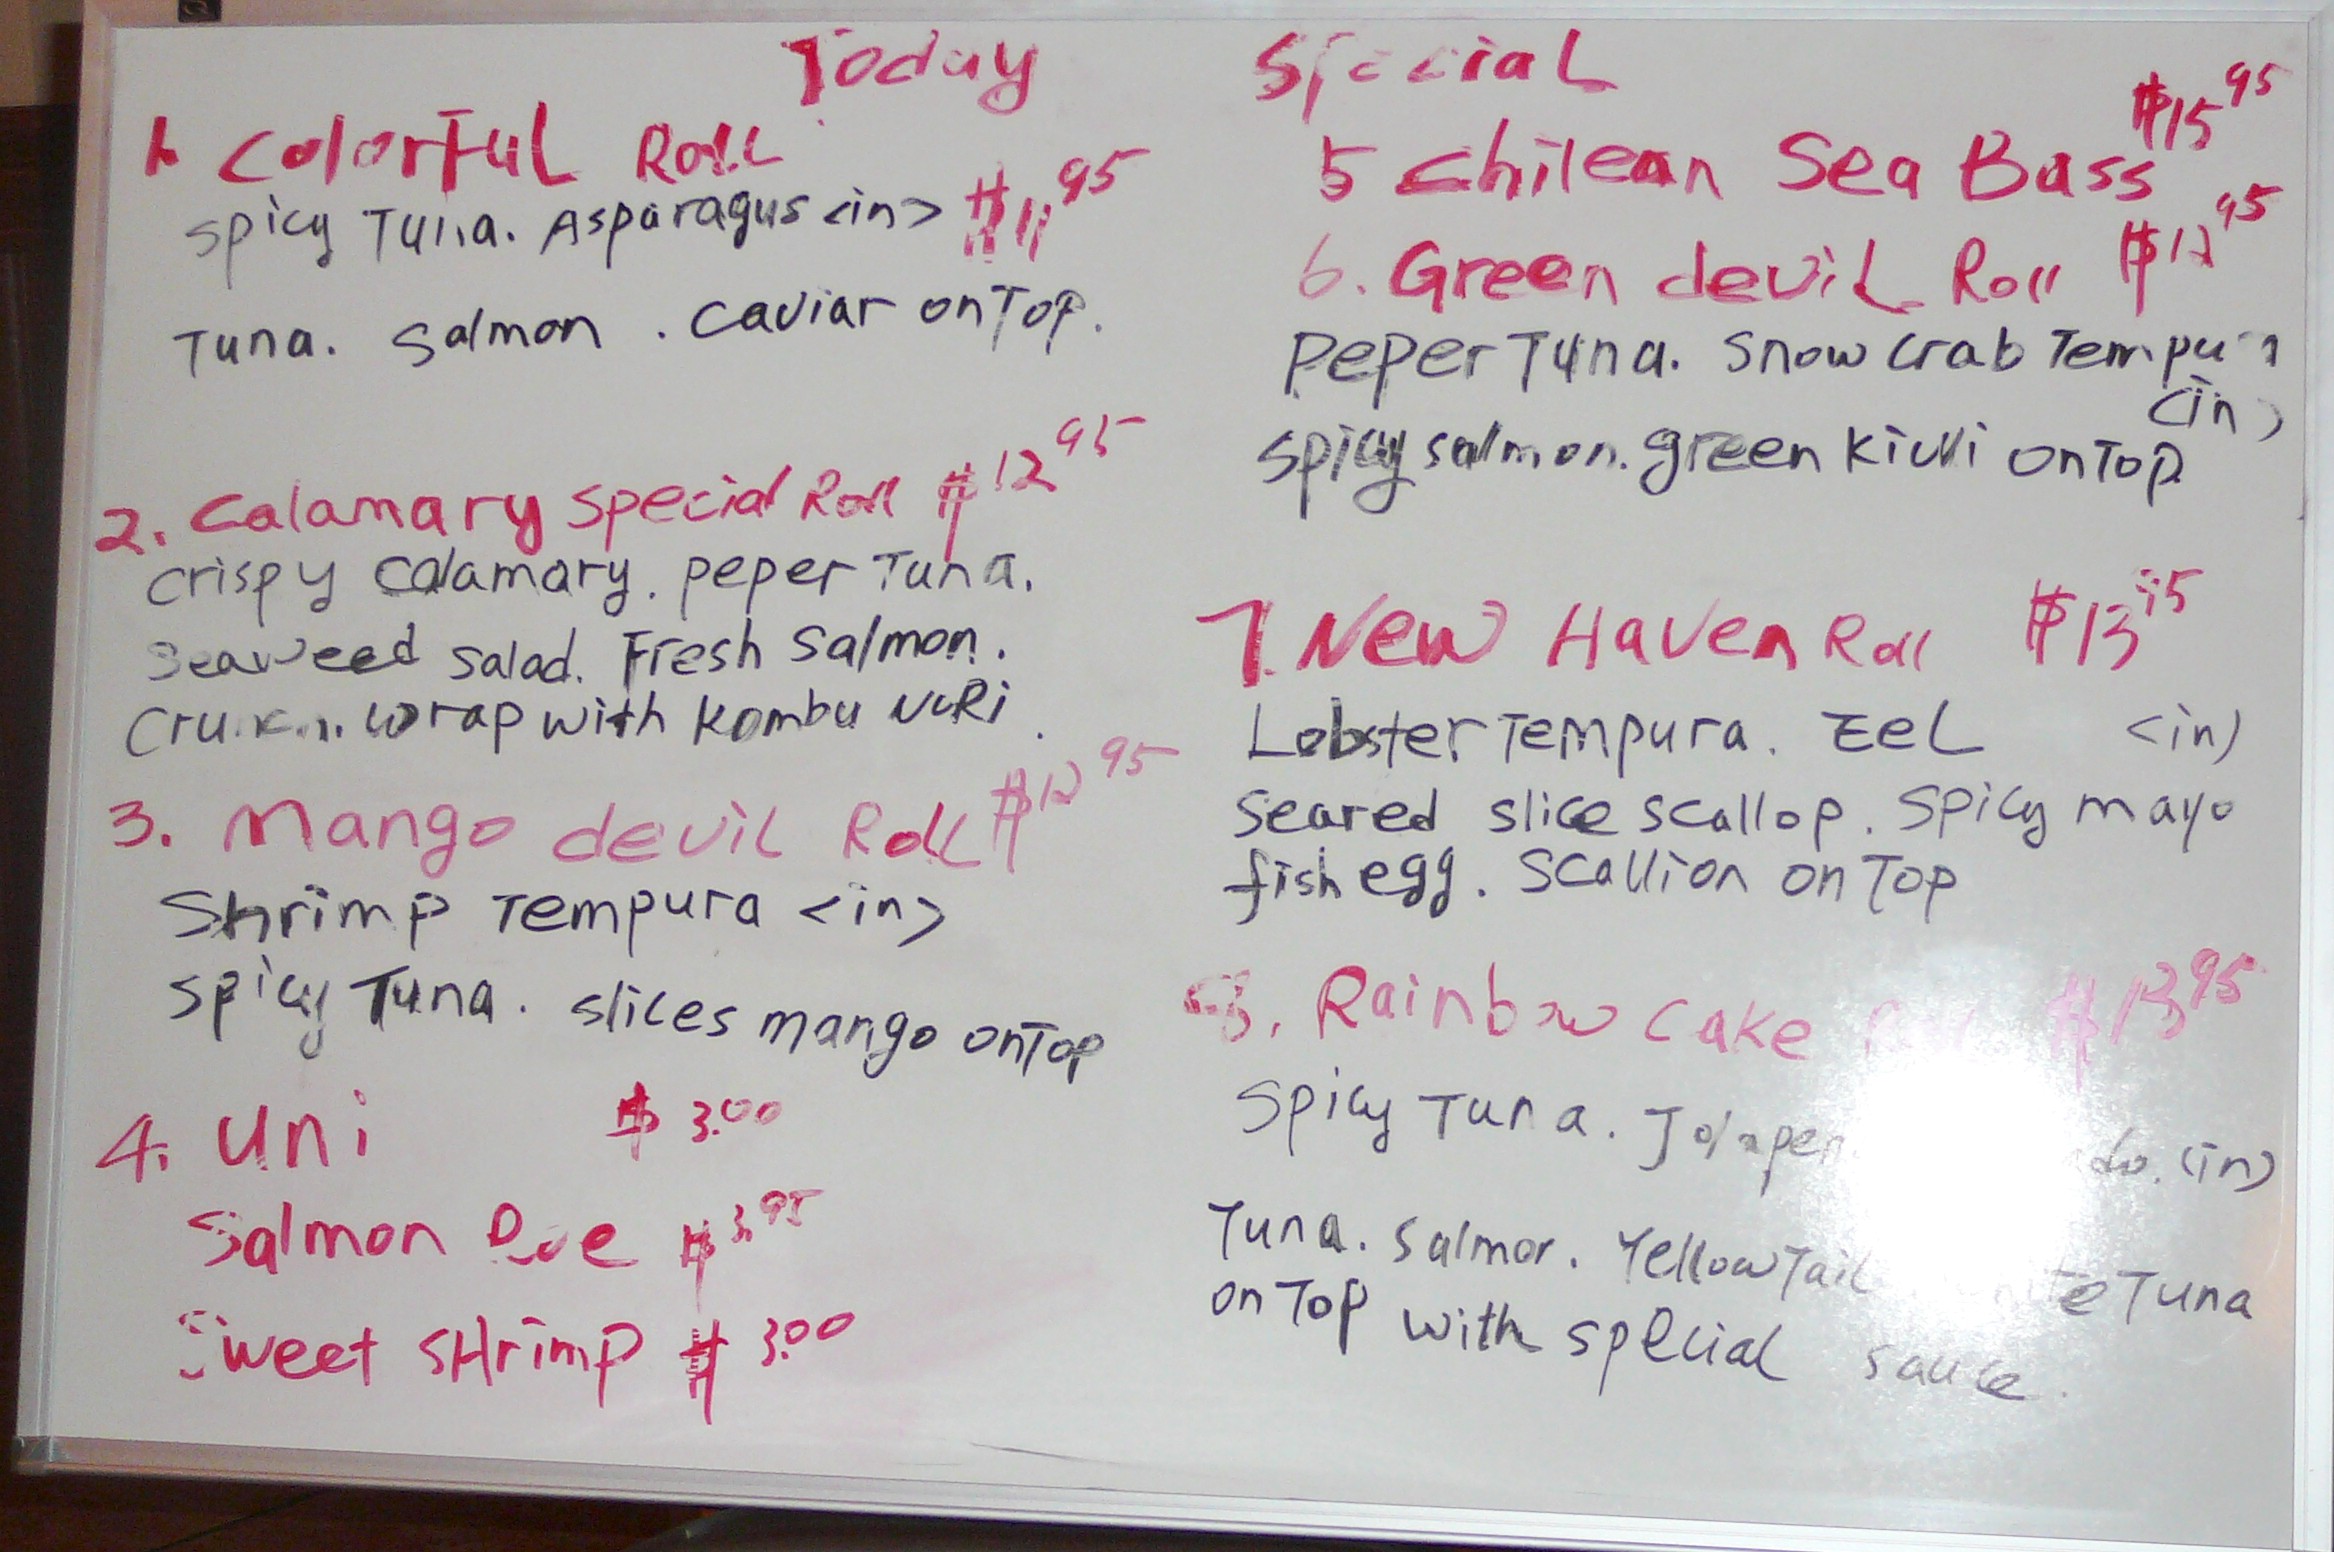 Today Special
1. Colorful Roll
Spicy Tuna. Asparagus <in> $11.95
Tuna. Salmon. Caviar on Top.
2. Calamary special Roll $12.95
crispy calamary. peper Tuna.
Seaweed salad. Fresh salmon.
wrap with Kombu NoRi.
3. Mango devil Roll $12.95
Shrimp Tempura <in>
spicy Tuna. slices mango on Top
4. uni $3.00
Salmon Roe $3.95
Sweet sHrimp $3.00
5 Chilean Sea Bass $15.95
6. Green devil Roll $12.95
PePer Tuna. Snow crab Tempura
<in>
spicy salmon. green kiwi on Top
7. New Haven Roll $13.95
Lobster Tempura. EeL <in>
seared slice scallop. spicy mayo
fish egg. scallion on Top
8. Rainbow cake Roll $13.95
Spicy Tuna. (in)
Tuna. salmon. Yellow Tail Tuna
on Top with special sauce.